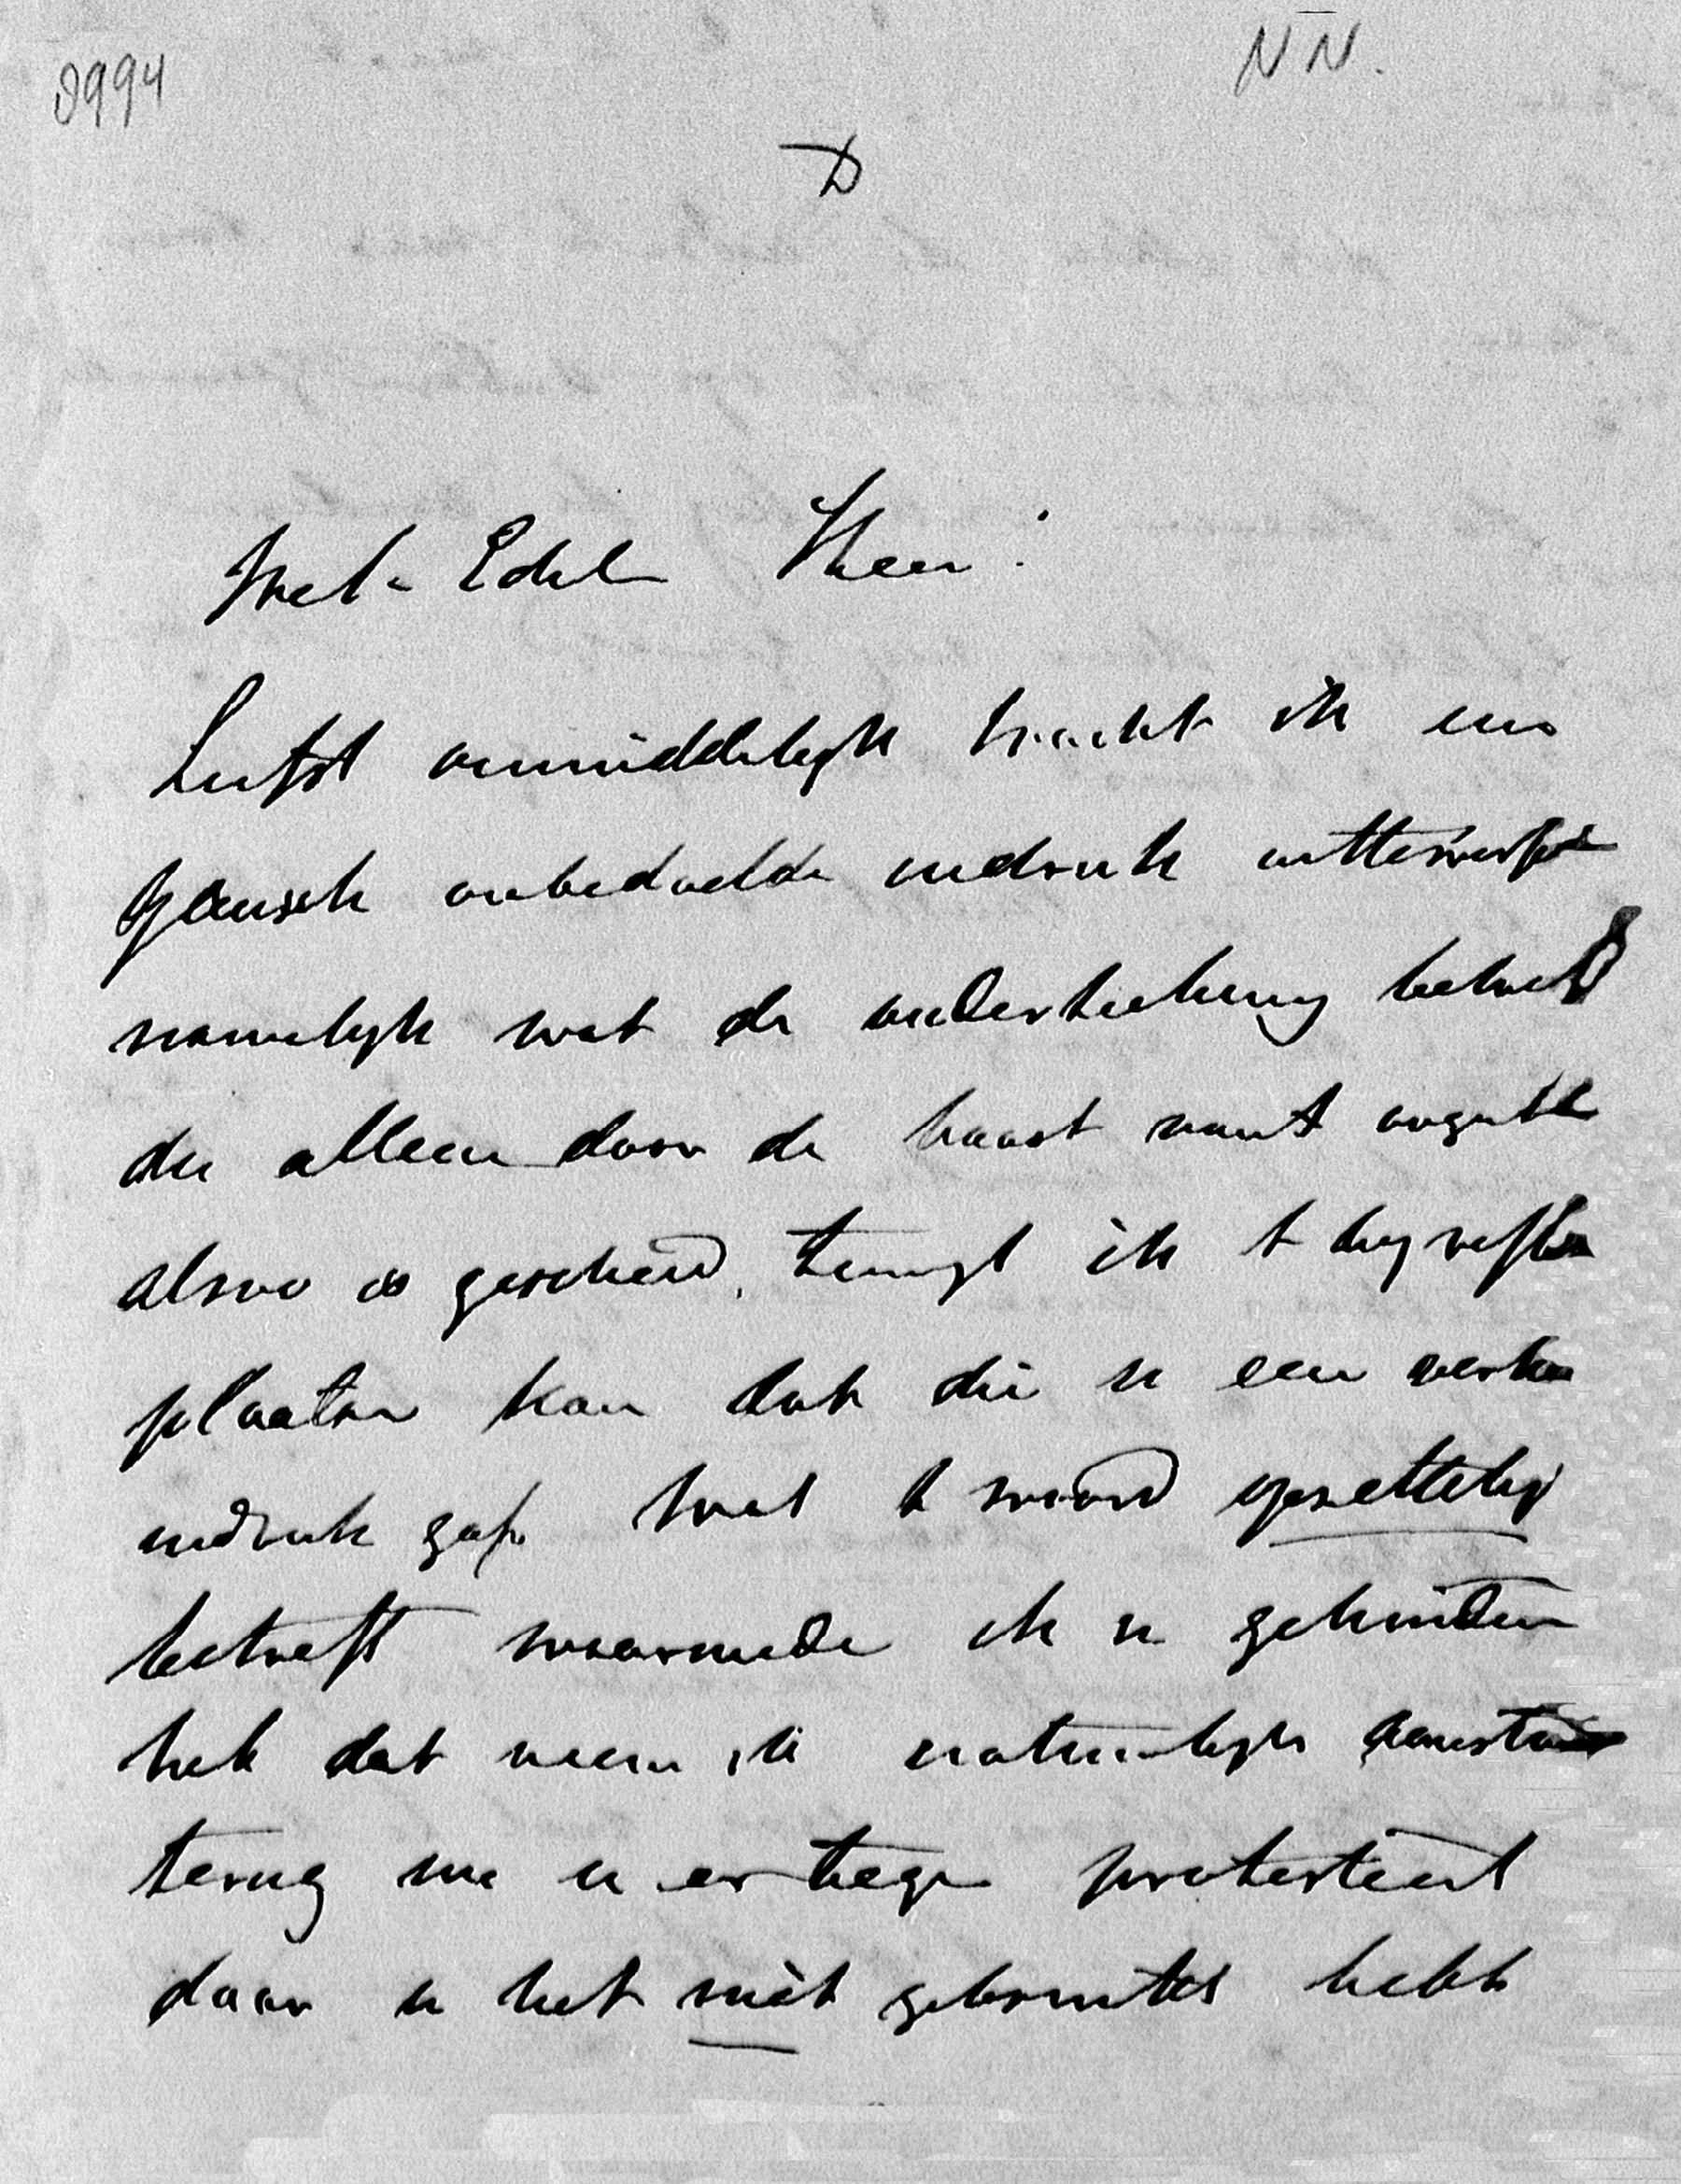 8994
NN.
D
Wel Edel Heer:
Liefst onmiddelyk tracht ik een
gansch onbedoelde indruk uittewisschen
namelyk wat de onderteekening betreft
die alleen door de haast want
alsoo is geschied, terwyl ik
plaatsen kan dat die u een
indruk gaf. Wat 't woord opzettelyk
betreft waarmede ik u
heb dat neem ik natuurlyk
terug nu u er tegen protesteert
daar u het niet gebruikt hebt